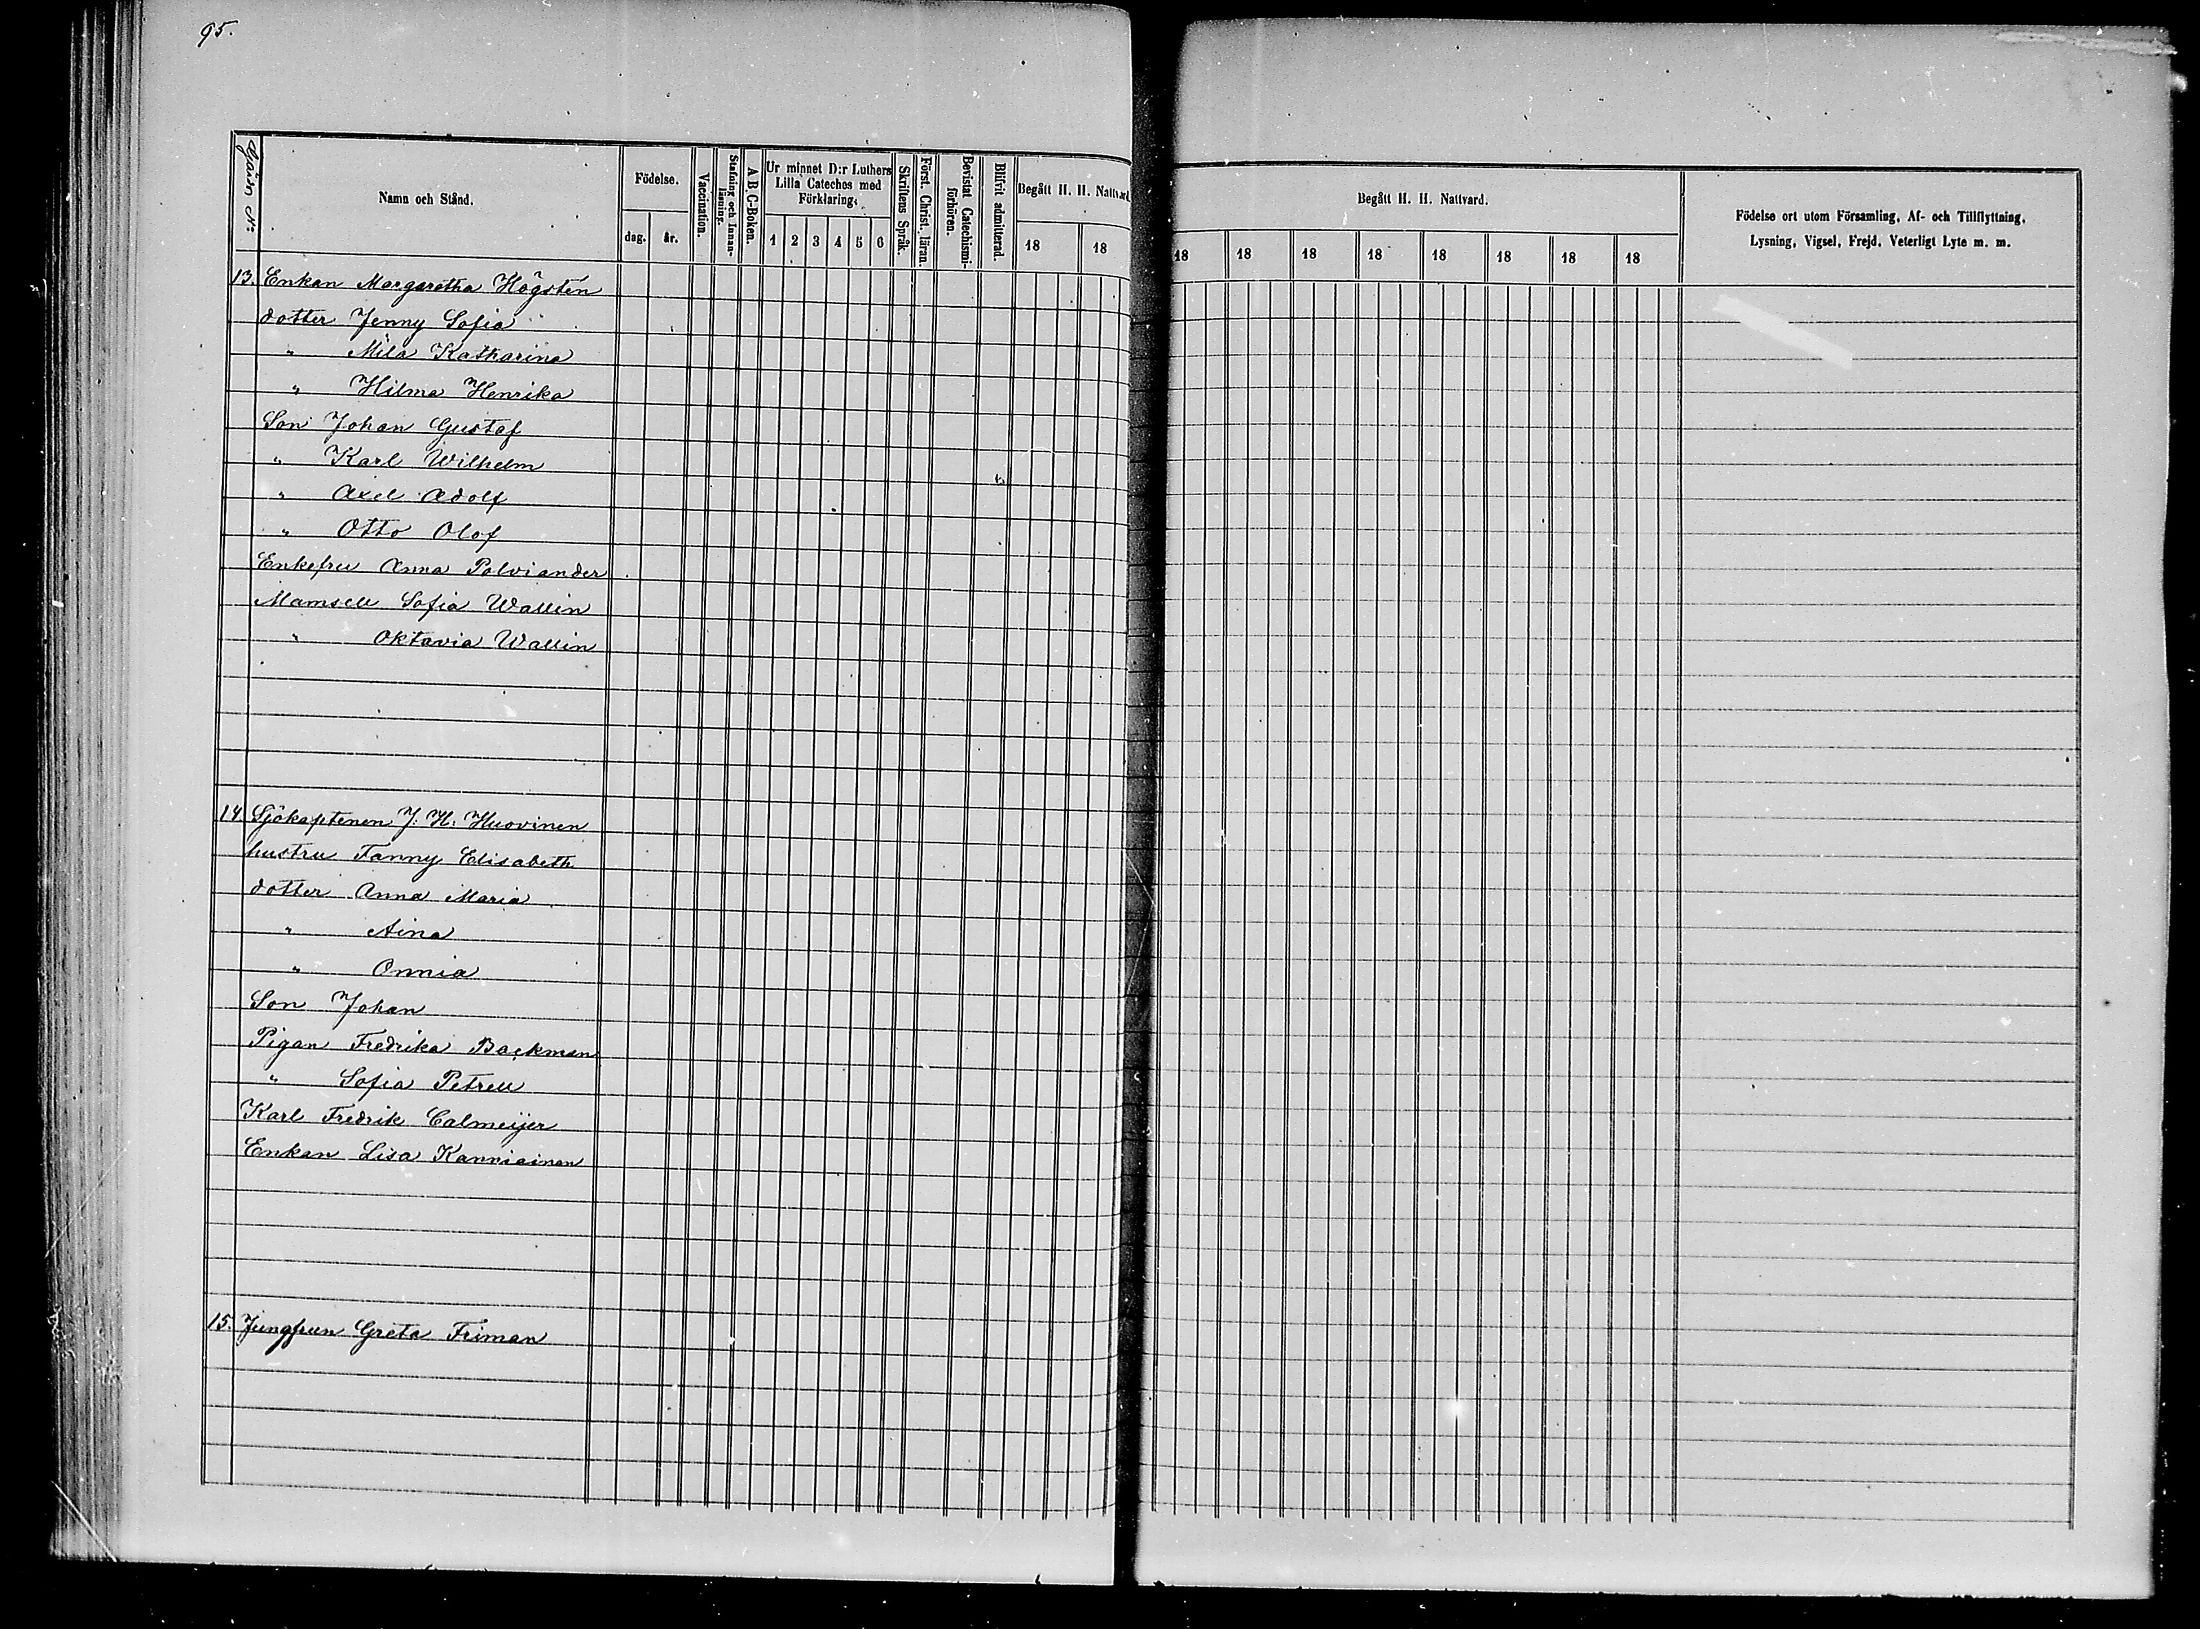 95.
Gården No
Namn och Stånd.
Födelse.
dag.
år.
Vaccination.
Stafning och Innan-läsning.
A B C-Boken.
Ur minnet D:r Luthers
Lilla Cateches med
Förklaring.
1 2 3 4 5 6
Skriftens Språk.
Först. Christ. läran.
Bevistat Catechismi-förhören.
Blifvit admitterad.
Begått H. H. Nattvard
18 18
Begått H. H. Nattvard.
18 18 18 18 18 18 18 18
Födelse ort utom Församling, Af- och Tillflyttning,
Lysning, Vigsel, Frejd, Veterligt Lyte m. m.
13. Enkan Margaretha Högstén
dotter Jenny Sofia
" Mila Katharina
" Hilma Henrika
Son Johan Gustaf
" Karl Wilhelm
" Axel Adolf
" Otto Olof
Enkefru Anna Polviander
Mamsell Sofia Wallin
" Oktavia Wallin
14. Sjökaptenen J. H. Huovinen
hustru Fanny Elisabeth
dotter Anna Maria
" Aina
" Onnia
Son Johan
Pigan Fredrika Backman
" Sofia Petrell
Karl Fredrik Calmeijer
Enkan Lisa Kanniainen
15. Jungfrun Greta Friman